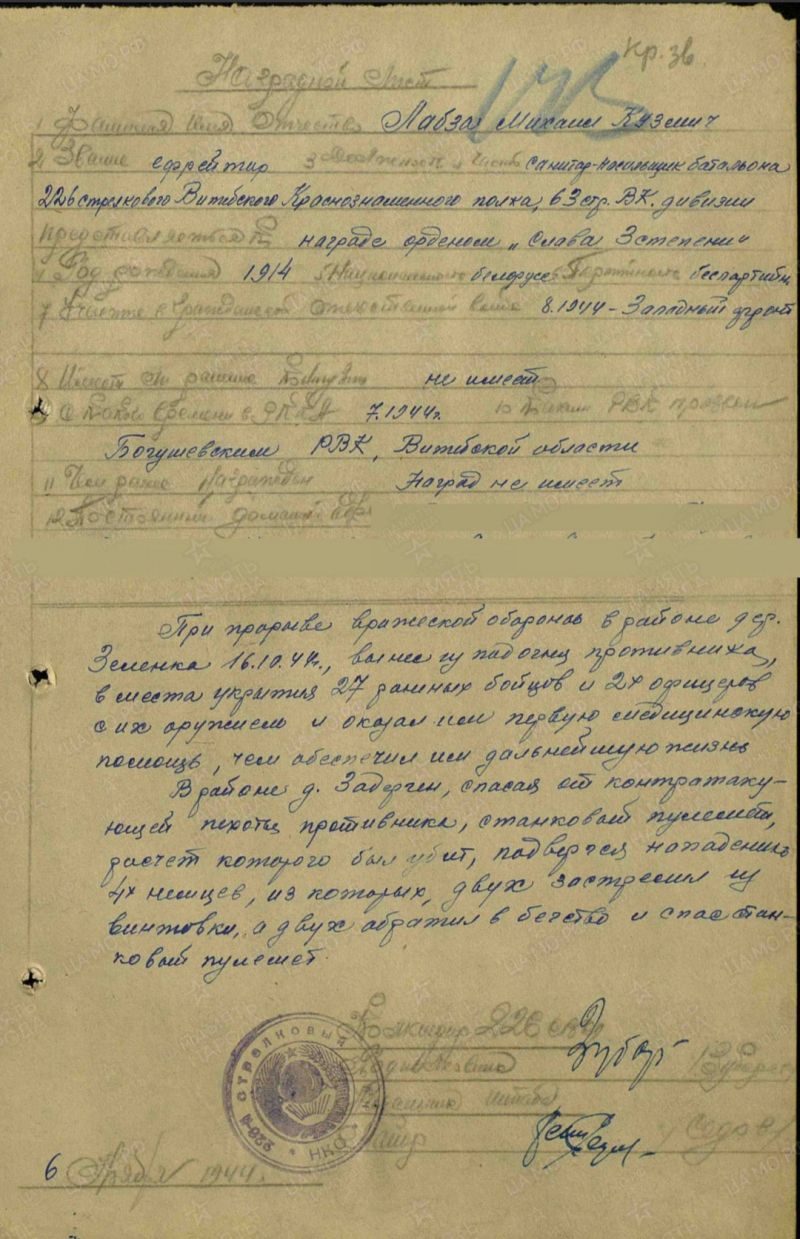 Кр. Зв
Наградной Лист
1 Фамилия Имя Отчество Лабза Михаил Кузмич
2 Звание ефрейтор 3 Должность и Часть санитар-носильщик батальона
226 стрелкового Витебского Краснознаменного полка, 63 стр. ВК. дивизии
Представляется к награде орденом „Слава 3 степени"
4 Год рождения 1914 5 Национальность белорусс 6 Партийность беспартийн.
7 Участие в Гражданской Отечественной войне 8.1944 - Западный фронт
8 Имеет ли ранение не имеет
9 С какого времени в РККА 7.1944г. 10 Каким РВК призван
Богушевским РВК, Витебской области
11 Чем ранее Награжден Наград не имеет
12 Постоянный домаший адр
При прорыве вражеской обороны в районе дер.
Зеленка 16.10.44г., вынес из под огня противника,
в места укрытия 27 раненых бойцов и 2х офицеров
с их оружием и оказал им первую медицинскую
помощь, чем обеспечил им дальнейшую жизнь
В районе д. Задерген, спасая от контратаку-
ющей пехоты противника, станковый пулемет,
расчет которого был убит, подвергся нападению
4х немцев, из которых, двух застрелил из
винтовки, а двух обратил в бегство и спас стан-
ковый пулемет.
Командир 226
Подполковник
Начальник штаба
226-й стрелковый НКО
6 Ноября 1944г.